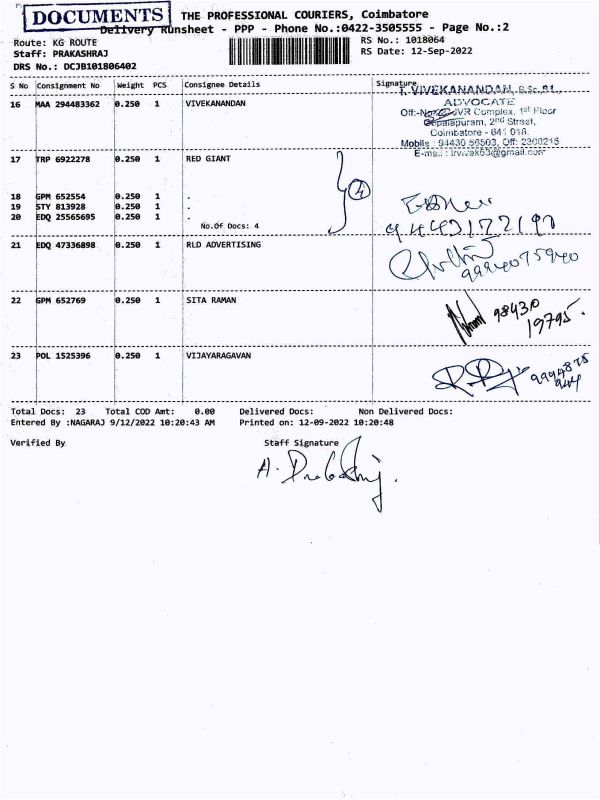 DOCUMENTS
THE PROFESSIONAL COURIERS, Coimbatore
Delivery Runsheet - PPP - Phone No.:0422-3505555 - Page No.:2
Route: KG ROUTE
Staff: PRAKASHRAJ
DRS No.: DCJB101806402
RS No.: 1018064
RS Date: 12-Sep-2022
S No Consignment No Weight PCS Consignee Details Signature
16 MAA 294483362 0.250 1 VIVEKANANDAN
VIVEKANANDAN, B.Sc.,
ADVOCATE
Complex, 1st Floor
Gopalapuram, 2nd Street,
Coimbatore - 641 018.
Mobile : 94430 56503, Off: 2300215
17 TRP 6922278 0.250 1 RED GIANT
18 GPM 652554 0.250 1 .
19 STY 813928 0.250 1 .
20 EDQ 25565695 0.250 1 .
No.Of Docs: 4
4
21 EDQ 47336898 0.250 1 RLD ADVERTISING
9994075940
22 GPM 652769 0.250 1 SITA RAMAN
98430
19795.
23 POL 1525396 0.250 1 VIJAYARAGAVAN
Total Docs: 23 Total COD Amt: 0.00 Delivered Docs: Non Delivered Docs:
Entered By :NAGARAJ 9/12/2022 10:20:43 AM Printed on: 12-09-2022 10:20:48
Verified By Staff Signature